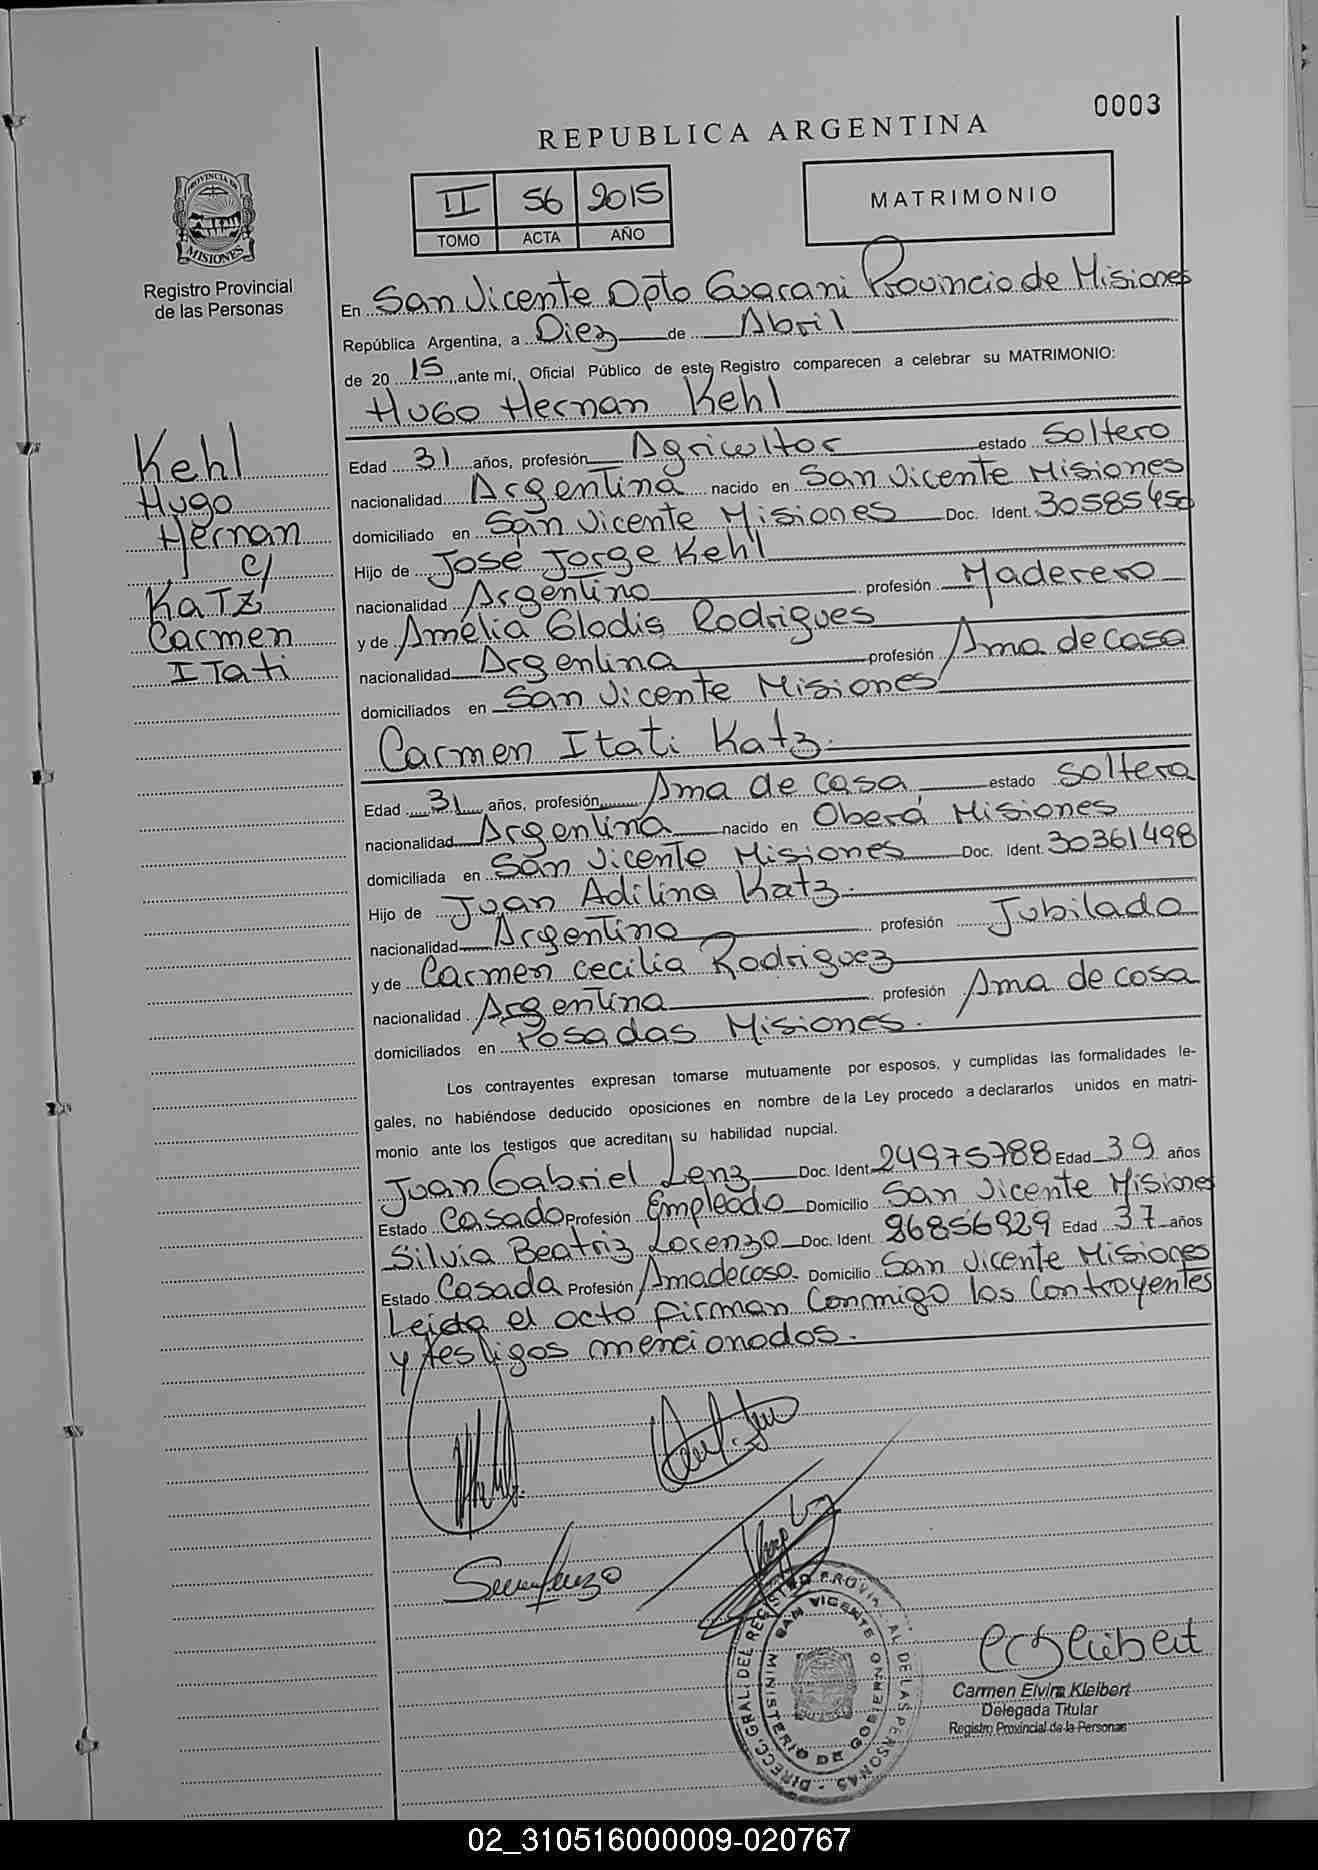 0003
REPUBLICA ARGENTINA
II 56 2015
TOMO ACTA AÑO
MATRIMONIO
PROVINCIA DE
MISIONES
Registro Provincial
de las Personas
En San Vicente Dpto Guarani Provincia de Misiones
República Argentina, a Diez de Abril
de 20 15, ante mí, Oficial Público de este Registro comparecen a celebrar su MATRIMONIO:
Hugo Hernan Kehl
Kehl
Hugo
Hernan
c/
Katz
Carmen
Itati
Edad 31 años, profesión Agricultor estado Soltero
nacionalidad Argentina nacido en San Vicente Misiones
domiciliado en San Vicente Misiones Doc. Ident. 30585450
Hijo de José Jorge Kehl
nacionalidad Argentino profesión Maderero
y de Amelia Glodis Rodrigues
nacionalidad Argentina profesión Ama de casa
domiciliados en San Vicente Misiones
Carmen Itati Katz.
Edad 31 años, profesión Ama de casa estado Soltera
nacionalidad Argentina nacido en Oberá Misiones
domiciliada en San Vicente Misiones Doc. Ident. 30361498
Hijo de Juan Adilino Katz.
nacionalidad Argentino profesión Jubilado
y de Carmen Cecilia Rodriguez
nacionalidad Argentina profesión Ama de casa
domiciliados en Posadas Misiones.
Los contrayentes expresan tomarse mutuamente por esposos, y cumplidas las formalidades le-
gales, no habiéndose deducido oposiciones en nombre de la Ley procedo a declararlos unidos en matri-
monio ante los testigos que acreditan su habilidad nupcial.
Juan Gabriel Lenz Doc. Ident. 24975788 Edad 39 años
Estado Casado Profesión Empleado Domicilio San Vicente Misiones
Silvia Beatriz Lorenzo Doc. Ident. 26856929 Edad 37 años
Estado Casada Profesión Amadecasa. Domicilio San Vicente Misiones
Leida el acto firman conmigo los controyentes
y testigos mencionados.
DIRECC. GRAL. DEL REGISTRO PROVINCIAL DE LAS PERSONAS
MINISTERIO DE GOBIERNO SAN VICENTE
Carmen Elvira Kleibert
Delegada Titular
Registro Provincial de la Personas
02_310516000009-020767